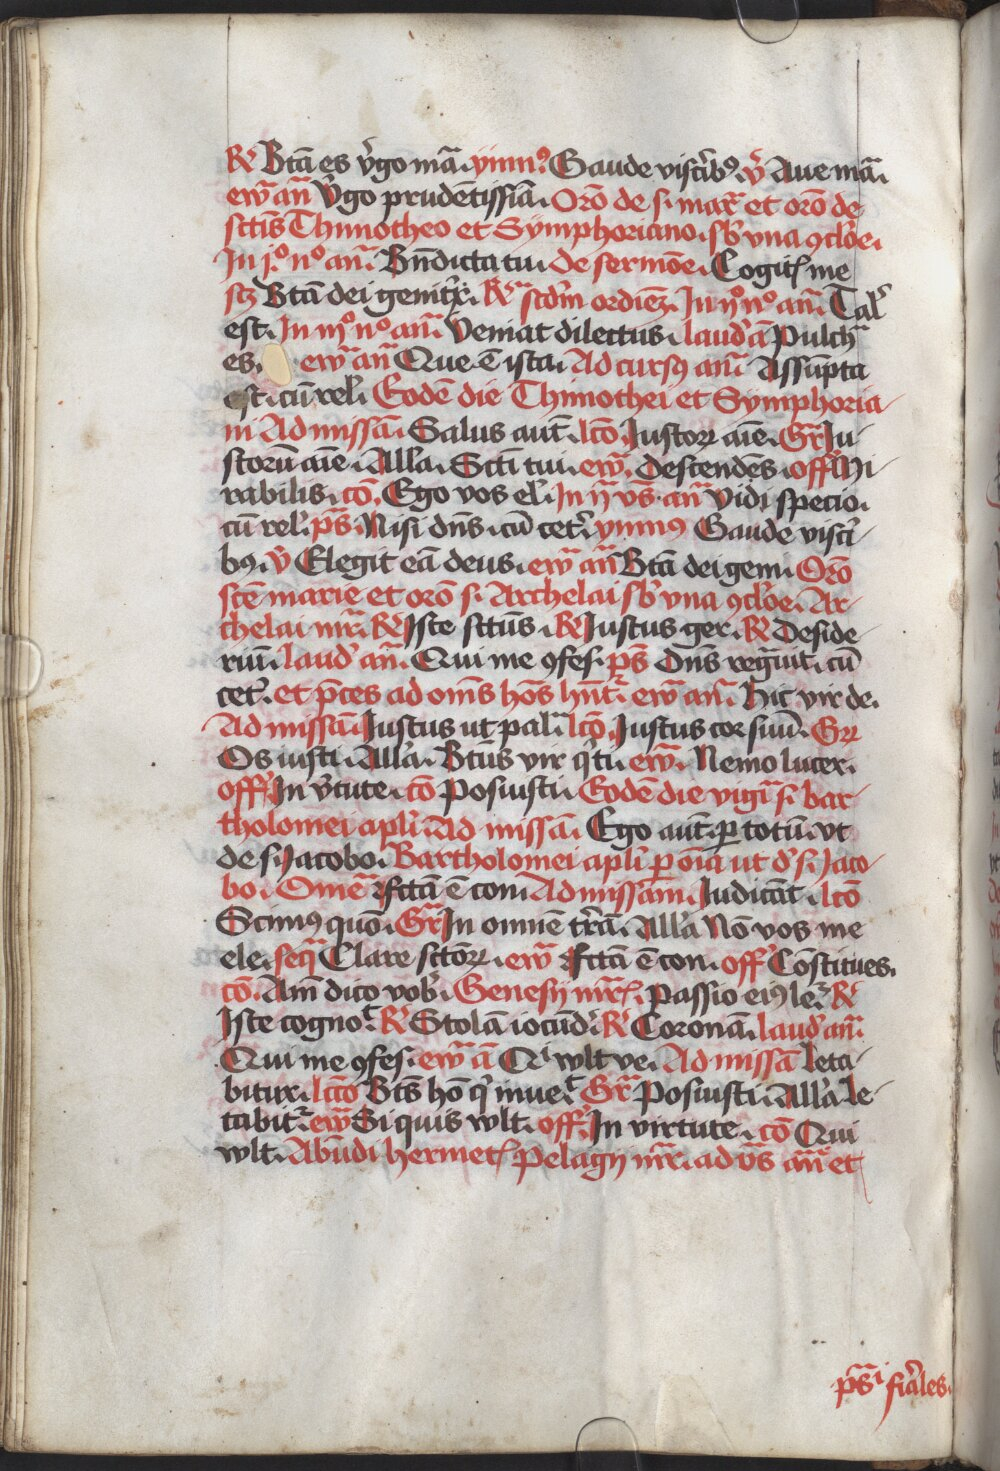 R̃ Btā es v̓go mā. ymn⁹. Gaude visc̓ib⁹. v̓ Aue mā.
ew̄ an̄ v̓go prudētissiā. Orō de s. mar̄ et orō de
sctīs Thimotheo et Symphoriano. sb̓ vna ꝯcl̓oe.
In j⁰ n⁰ an̄. Bn̄dicta tu. de sermōe. Cogit̓ me
scꝫ Btā dei genit̓x. R̃ scd̓m ordiēꝫ. In ij⁰ n⁰ an̄. Tal̓
est. In iij⁰ n⁰ an̄. Veniat dilectus. laud̓ ā Pulch̓
es. ew̄ an̄ Que ē ista. Ad cursꝰ an̄. Assūpta
est. cū rel̓. Eodē die Thimothei et Symphoria
ni Ad missā. Salus aut̄. lcō. Justoꝝ aīe. Gr̄ Ju
storū aīe. All̓a. Sctī tui. ew̄. Descendēs. off̓ Mi
rabilis. cō. Ego vos el̓. In ij v̄s. an̄ Vidi specio.
cū rel̓. ps̄. Nisi dn̄s. cū cet̓. ymnꝰ Gaude visc̓i
bꝰ. v̓ Elegit eā deus. ew̄ an̄ Btā dei geni. Orō
scē marie et orō s. Archelai sb̓ vna ꝯcl̓oe. Ar
chelai mr̄. R̃ Iste sctūs. R̃ Justus ger. R̃ Deside
riū. laud̓ an̄. Qui me ꝯfes. ps̄ Dn̄s regnauit. cū
cet̓. et p̄ces ad om̄s ho̅s hn̄t̓. ew̄ an̄. Hic vir de.
Ad missā. Justus ut pal̓. lcō. Justus cor suū. Gr̄
Os iusti. All̓a. Btūs vir q̓ ti. ew̄. Nemo lucer.
off̓ In v̓tute. cō Posuisti. Eodē die vigi̓a s. bar
tholomei apl̓i. Ad missā. Ego aut̄. ꝑ totū. vt
de s. Jacobo. Bartholomei apl̓i ꝑ oīa ut d̓ s. Jaco
bo. Omēa ffctā ē com. Ad missam. Judicāt. lcō
Scimꝰ quō. Gr̄ In omnē tr̄ā. All̓a Nō vos me
ele. seq̄ Clare sctōꝝ. ew̄ ffctā ē con. off̓ Cōstitues.
cō. Am̄ dico vob̓. Genesij mr̄. Passio eiꝰ le. R̃
Iste cogno. R̃ Stolam iocūd̓. R̃ Coronam. laud̓ an̄.
Qui me ꝯfes. ew̄ ā Qⁱ wlt ve. Ad missā Leta
bitur. lcō Bts̄ ho̅ q̓ inue. Gr̄ Posuisti. All̓a Le
tabit̓. ew̄ Si quis wlt. off̓. In virtute. cō Qui
wlt. Abūdi hermet̓ Pelagij mr̄. ad v̄s an̄ et
ps̄ fiāles.